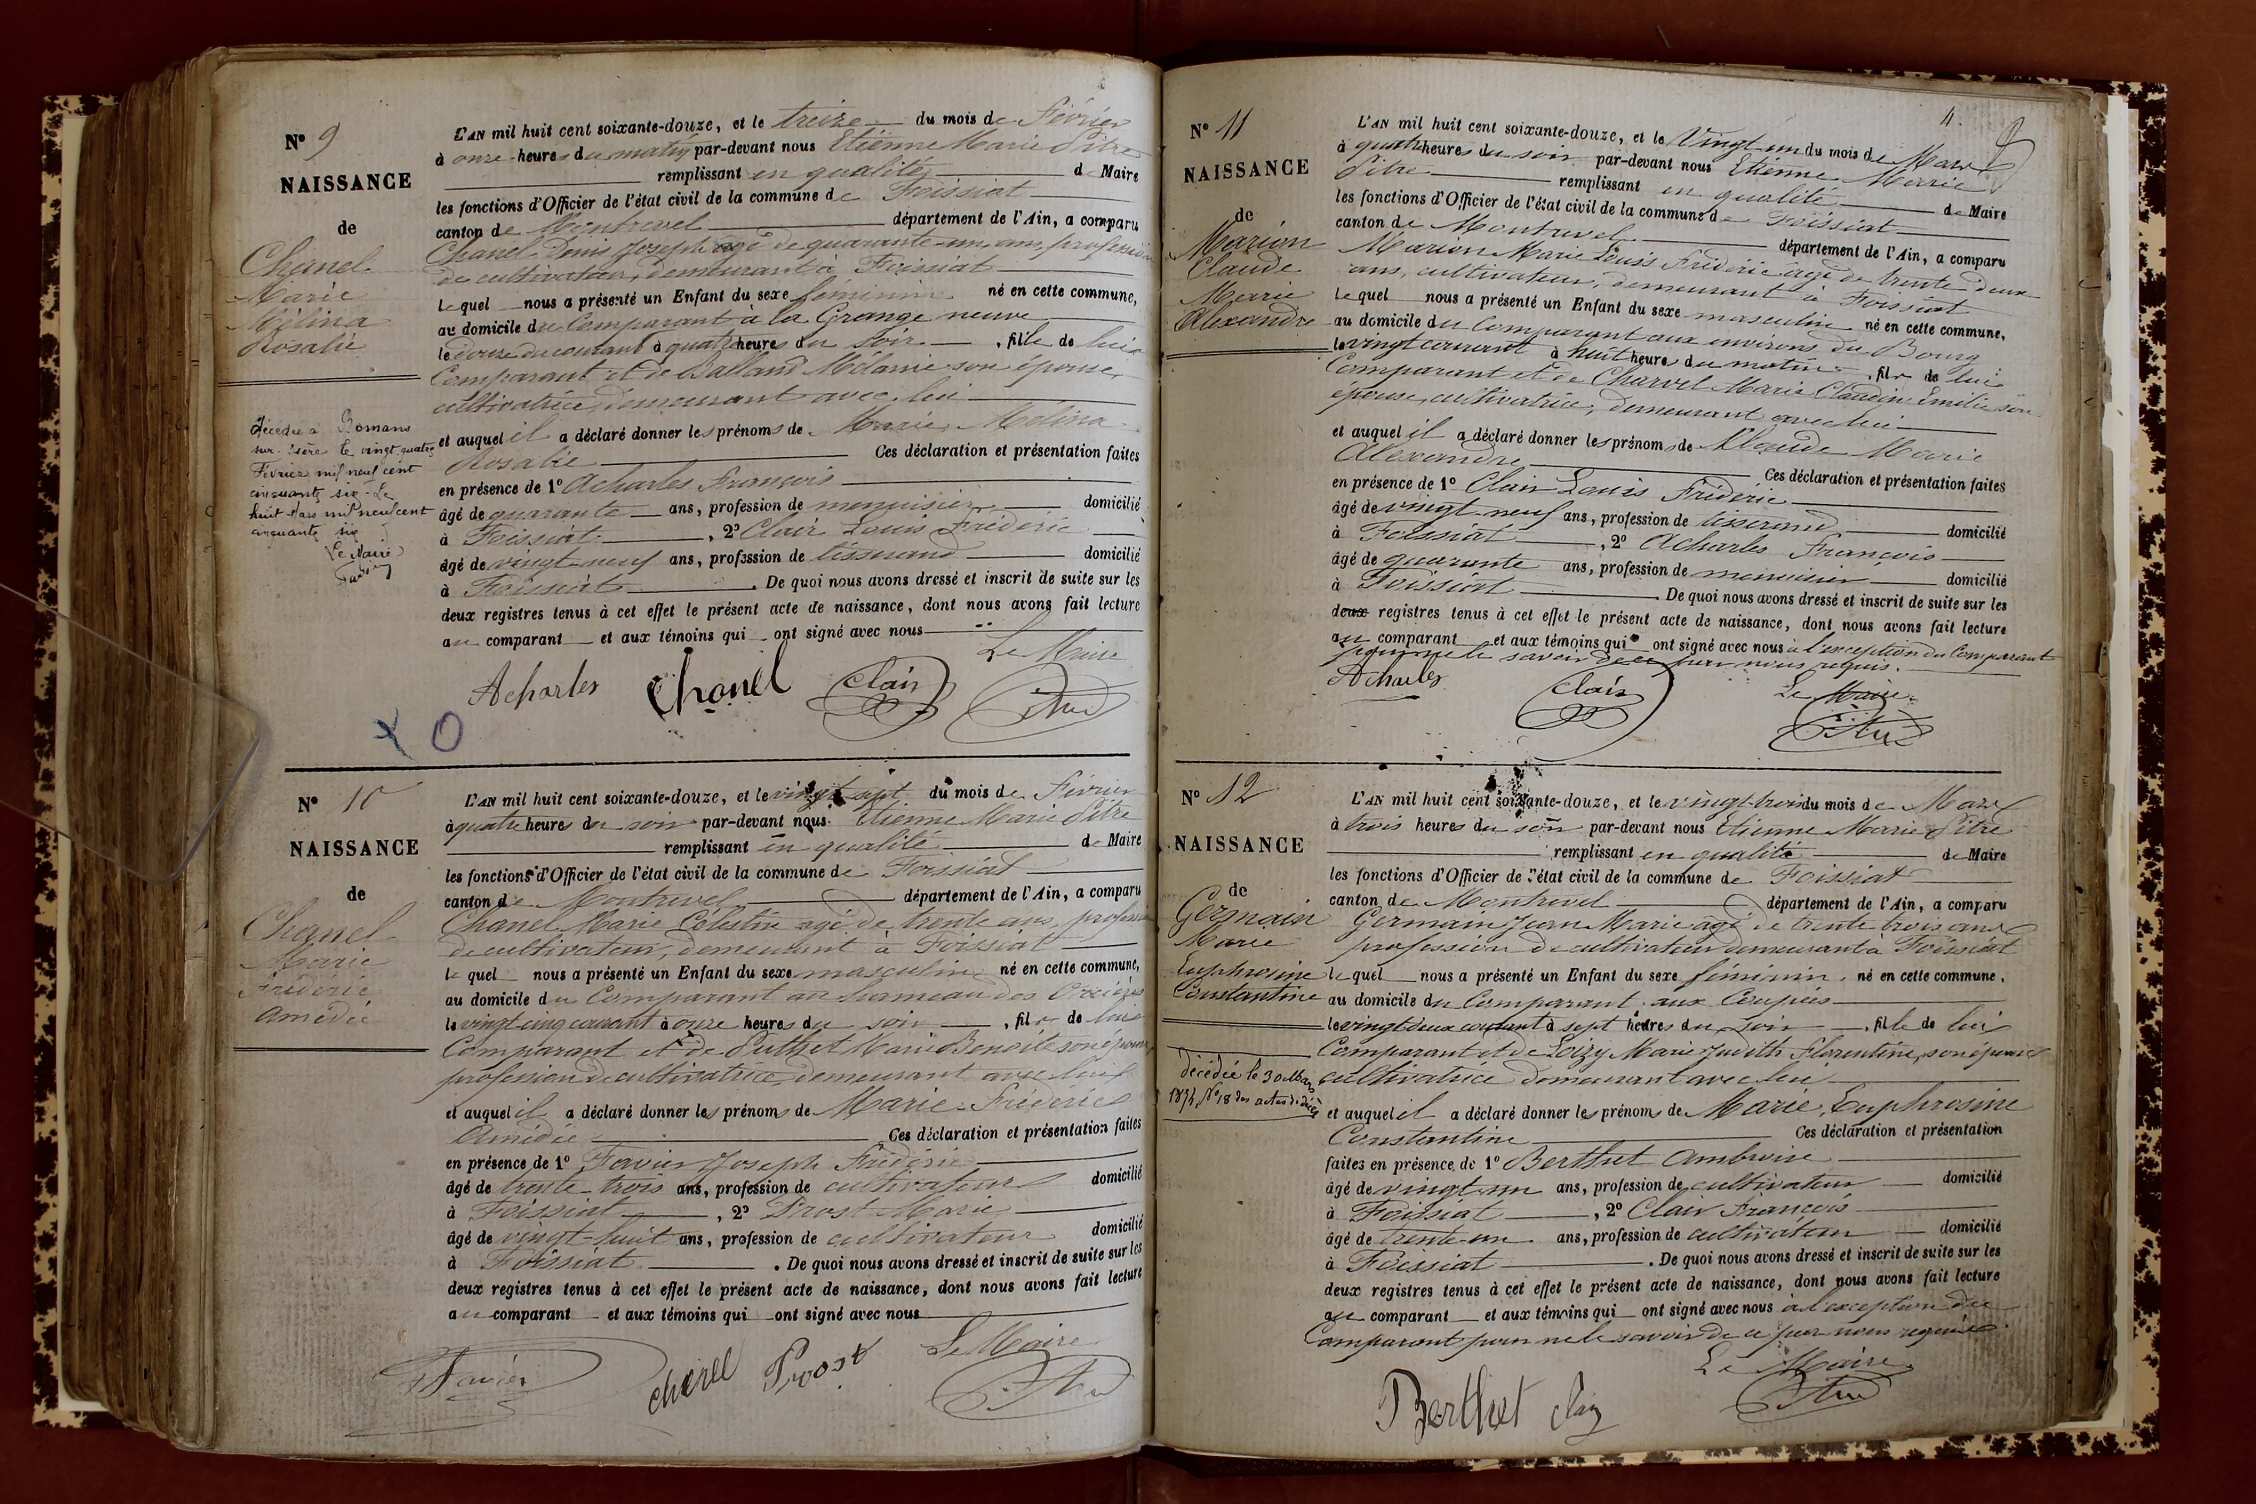 N° 9
NAISSANCE
de
Chanel
Marie
Mélina
Rosalie
Décédée à Romans
sur Isère le vingt quatre
Février mil neuf cent
cinquante six - Le
huit Mars mil neuf cent
cinquante six
Le Maire
L'AN mil huit cent soixante-douze, et le treize du mois de Février
à onze heures du matin par-devant nous Etienne Marie Pitre
remplissant en qualité de Maire
les fonctions d'Officier de l'état civil de la commune de Foissiat
canton de Montrevel département de l'Ain, a comparu
Chanel Denis Joseph agé de quarante-un ans, profession
de cultivateur, demeurant à Foissiat
lequel nous a présenté un Enfant du sexe féminin né en cette commune,
au domicile du Comparant à la Grange neuve
le douze du courant à quatre heures du soir, fille de lui
Comparant et de Balland Mélanie son épouse,
cultivatrice, demeurant avec lui
et auquel il a déclaré donner les prénoms de Marie Mélina
Rosalie Ces déclaration et présentation faites
en présence de 1° Acharles François
âgé de quarante ans, profession de menuisier domicilié
à Foissiat, 2° Clair Louis Fréderic
âgé de vingt-neuf ans, profession de tisserand domicilié
à Foissiat. De quoi nous avons dressé et inscrit de suite sur les
deux registres tenus à cet effet le présent acte de naissance, dont nous avons fait lecture
au comparant et aux témoins qui ont signé avec nous
Le Maire
Acharles Chanel Clair Pitre
N° 10
NAISSANCE
de
Chanel
Marie
Fréderic
Amédée
L'AN mil huit cent soixante-douze, et le vingt sept du mois de Février
à quatre heures du soir par-devant nous Etienne Marie Pitre
remplissant en qualité de Maire
les fonctions d'Officier de l'état civil de la commune de Foissiat
canton de Montrevel département de l'Ain, a comparu
Chanel Marie Célestin agé de trente ans, profession
de cultivateur, demeurant à Foissiat
lequel nous a présenté un Enfant du sexe masculin né en cette commune,
au domicile du Comparant au hameau des
le vingt cinq courant à onze heures du soir, fils de lui
Comparant et de Puthet Marie Benoite son épouse
profession de cultivatrice, demeurant avec lui
et auquel il a déclaré donner les prénoms de Marie Fréderic
Amédée Ces déclaration et présentation faites
en présence de 1° Favier Joseph Fréderic
âgé de trente-trois ans, profession de cultivateur domicilié
à Foissiat, 2° Prost Marie
âgé de vingt-huit ans, profession de cultivateur domicilié
à Foissiat. De quoi nous avons dressé et inscrit de suite sur les
deux registres tenus à cet effet le présent acte de naissance, dont nous avons fait lecture
au comparant et aux témoins qui ont signé avec nous
Le Maire
Favier chanel Prost Pitre
4.
N° 11
NAISSANCE
de
Marion
Claude
Marie
Alexandre
L'AN mil huit cent soixante-douze, et le Vingt-un du mois de Mars
à quatre heures du soir par-devant nous Etienne Marie
Pitre remplissant en qualité de Maire
les fonctions d'Officier de l'état civil de la commune de Foissiat
canton de Montrevel département de l'Ain, a comparu
Marion Marie Louis Fréderic agé de trente deux
ans, cultivateur, demeurant à Foissiat
lequel nous a présenté un Enfant du sexe masculin né en cette commune,
au domicile du Comparant aux environs du Bourg
le vingt courant à huit heures du matin, fils de lui
Comparant et de Charvet Marie Claudine Emilie son
épouse, cultivatrice, demeurant avec lui
et auquel il a déclaré donner les prénoms de Claude Marie
Alexandre Ces déclaration et présentation faites
en présence de 1° Clair Louis Fréderic
âgé de vingt-neuf ans, profession de tisserand domicilié
à Foissiat, 2° Acharles François
âgé de quarante ans, profession de menuisier domicilié
à Foissiat. De quoi nous avons dressé et inscrit de suite sur les
deux registres tenus à cet effet le présent acte de naissance, dont nous avons fait lecture
au comparant et aux témoins qui ont signé avec nous à l'exception du Comparant
pour ne le savoir de ce par nous requis.
Acharles Clair Le Maire
Pitre
N° 12
NAISSANCE
de
Germain
Marie
Euphrosine
Constantine
décédée le 30 Mars
N° 18 des actes de décès
L'AN mil huit cent soixante-douze, et le vingt-trois du mois de Mars
à trois heures du soir par-devant nous Etienne Marie Pitre
remplissant en qualité de Maire
les fonctions d'Officier de l'état civil de la commune de Foissiat
canton de Montrevel département de l'Ain, a comparu
Germain Jean Marie agé de trente trois ans
profession de cultivateur demeurant à Foissiat
lequel nous a présenté un Enfant du sexe féminin, né en cette commune,
au domicile du Comparant aux Coupées
le vingt deux courant à sept heures du soir, fille de lui
Comparant et de Loizy Marie Judith Florentine, son épouse
cultivatrice demeurant avec lui
et auquel il a déclaré donner les prénoms de Marie Euphrosine
Constantine Ces déclaration et présentation
faites en présence de 1° Berthet Ambroise
âgé de vingt-un ans, profession de cultivateur domicilié
à Foissiat, 2° Clair François
âgé de trente-un ans, profession de cultivateur domicilié
à Foissiat. De quoi nous avons dressé et inscrit de suite sur les
deux registres tenus à cet effet le présent acte de naissance, dont nous avons fait lecture
au comparant et aux témoins qui ont signé avec nous à l'exception du
Comparant pour ne le savoir de ce par nous requis.
Le Maire
Berthet Clair Pitre